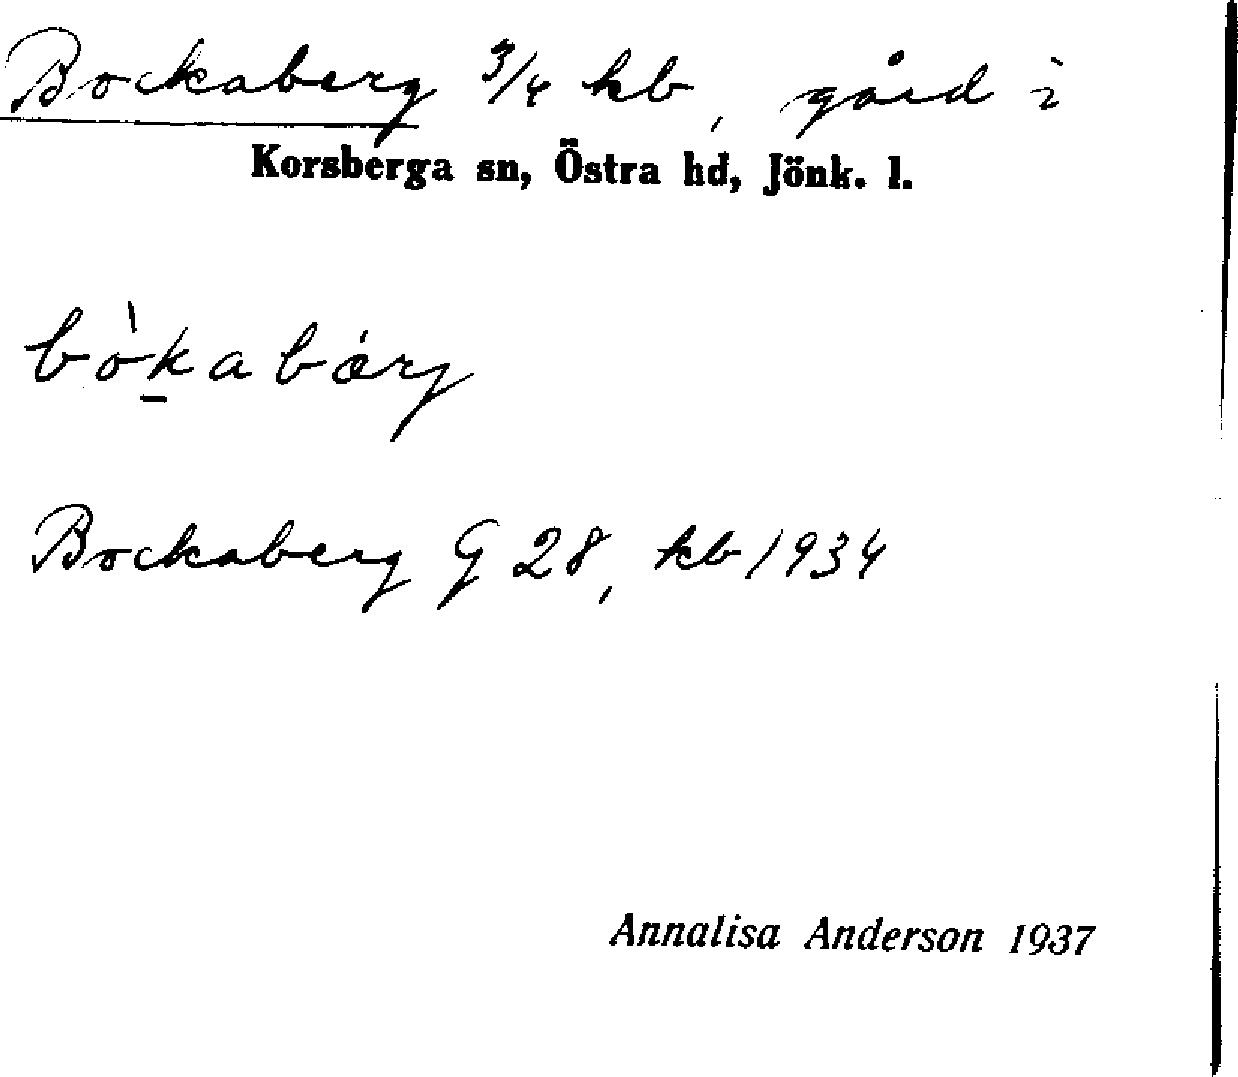 Bockaberg 3/4 hb, gård i
Korsberga sn, Östra hd, Jönk. l.
bòkabárj
Bockaberg G 28, kb 1934
Annalisa Anderson 1937